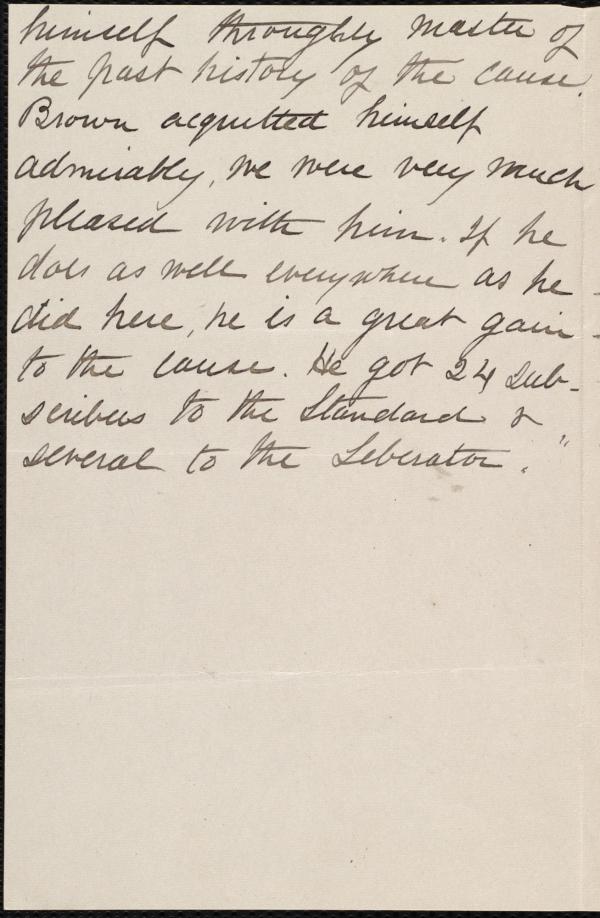 himself throughly master of
the past history of the cause.
Brown acquitted himself
admirably, we were very much
pleased with him. If he
does as well everywhere as he
did here, he is a great gain
to the cause. He got 24 sub-
scribers to the Standard &
several to the Liberator."